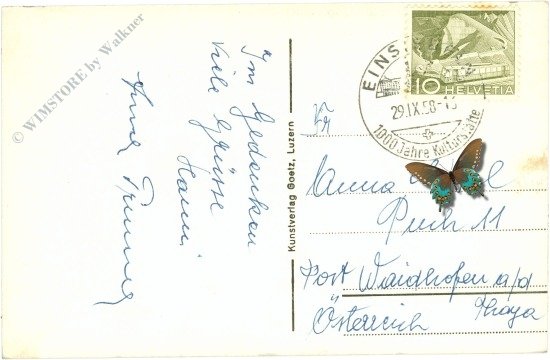 © WIMSTORE by Walkner
Im Gedenken
viele Grüsse
Hanni
Kunstverlag Goetz, Luzern
10 HELVETIA
EINS
29.IX.58-1
1000 Jahre Kultur
Fr
Anna
Puch 11
Post Waidhofen a/d
Thaya
Österreich